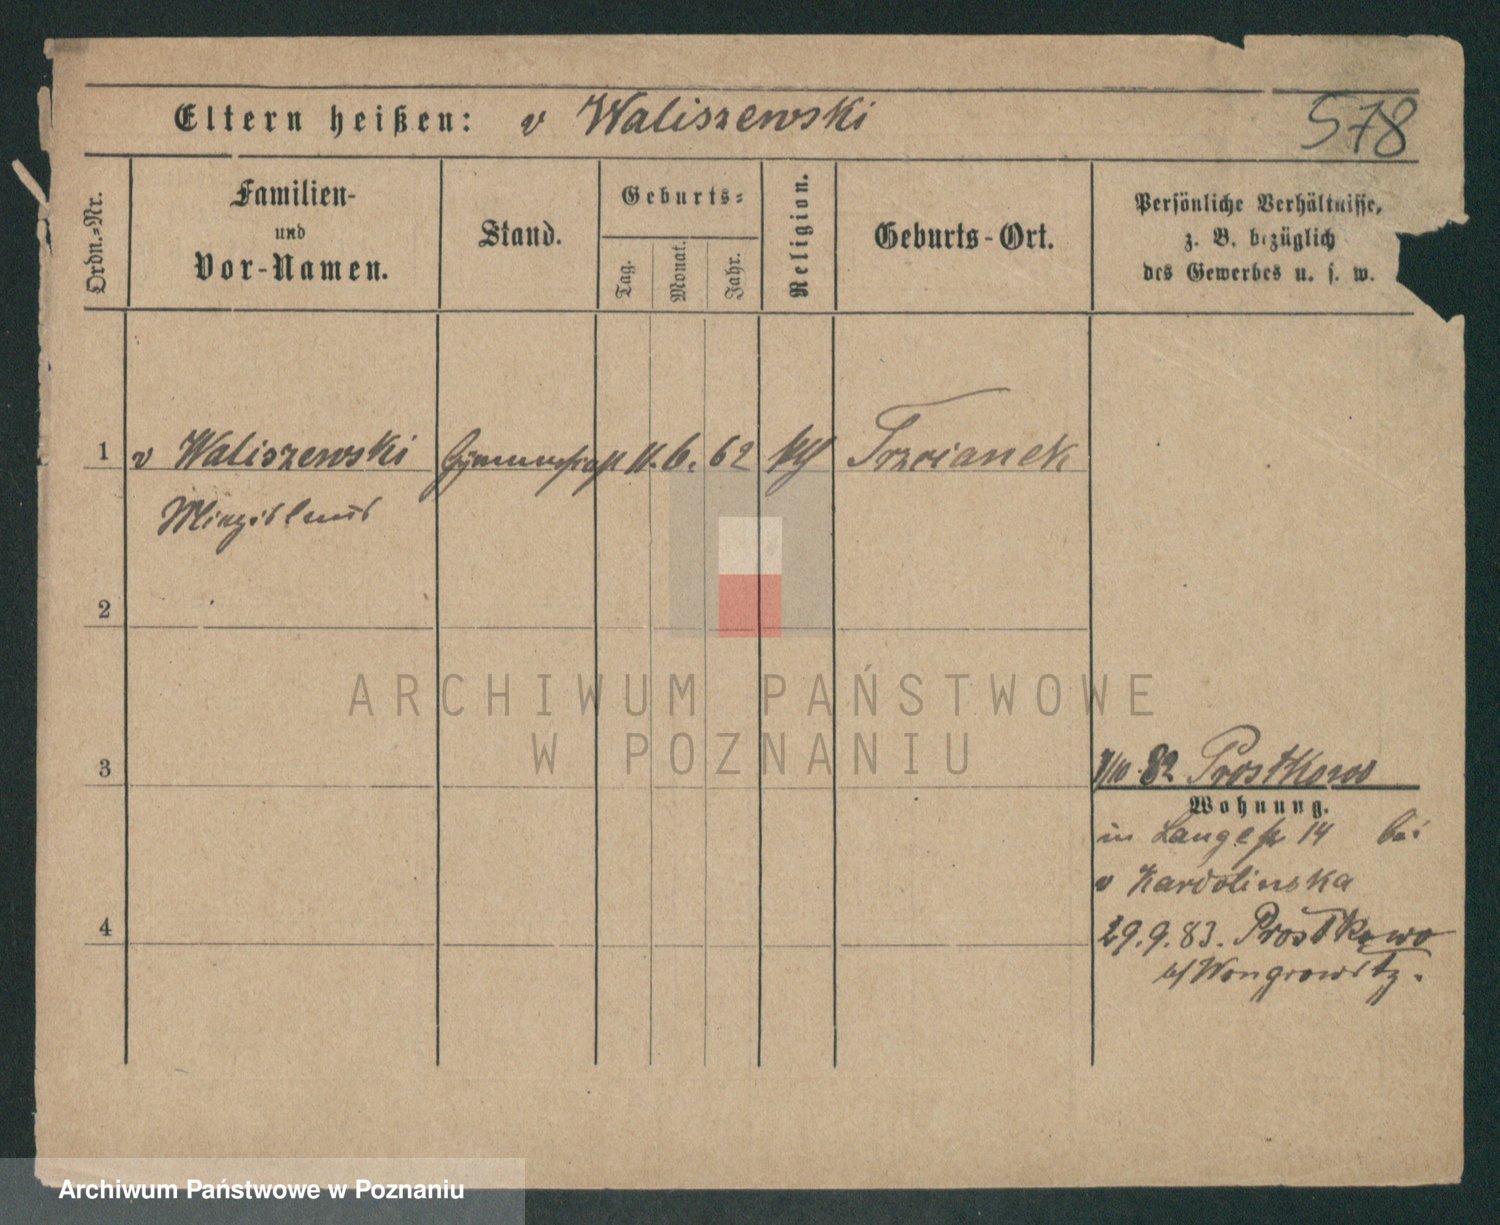 Eltern heißen: v Waliszewski
578
Ordn.-Nr.
Familien-
und
Vor-Namen.
Stand.
Geburts-
Tag.
Monat.
Jahr.
Religion.
Geburts-Ort.
Persönliche Verhältnisse,
z. B. bezüglich
des Gewerbes u. s. w.
1 v Waliszewski 11. 6. 62 Trzcianek
2
3
4
82 Prostkowo
Wohnung.
in Langestr 14 bei
v
29. 9. 83. Prostkowo
b/ Wongrowitz.
ARCHIWUM PAŃSTWOWE
W POZNANIU
Archiwum Państwowe w Poznaniu